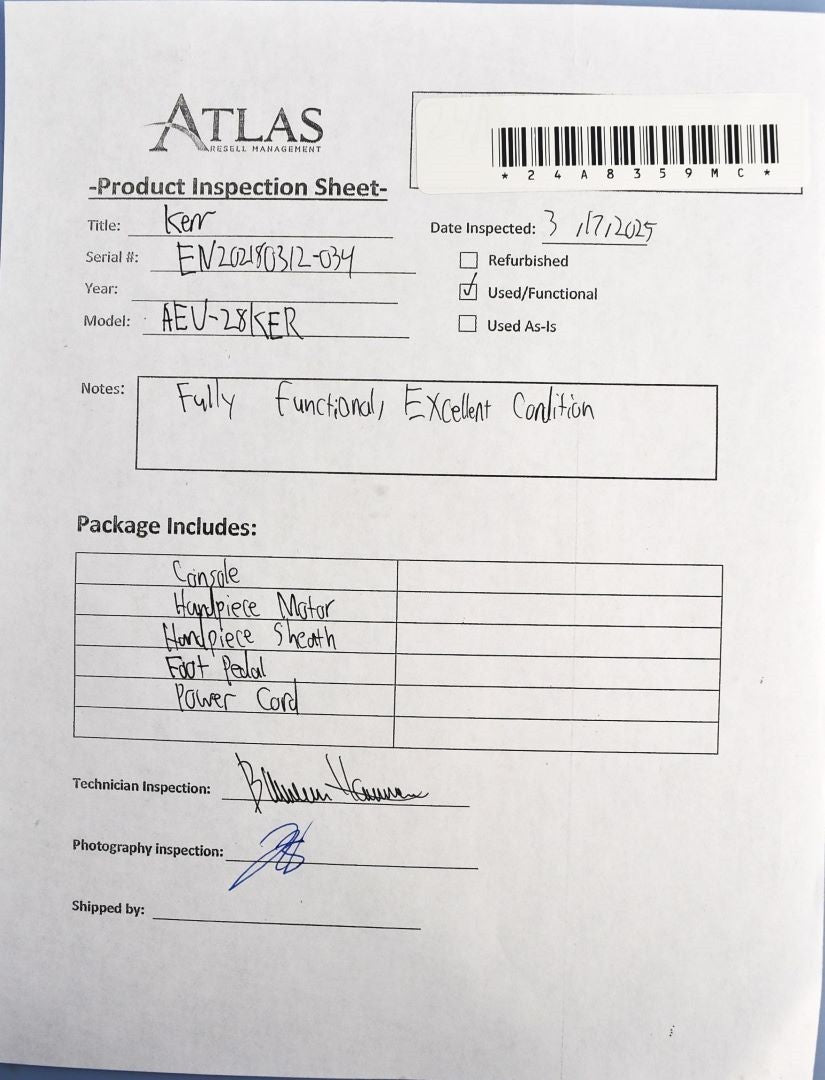 ATLAS
RESELL MANAGEMENT
* 2 4 A 8 3 5 9 M C *
-Product Inspection Sheet-
Title: Kerr
Date Inspected: 3/7/2025
Serial #: EN20180312-034
Refurbished
Year:
Used/Functional
Model: AEU-28KER
Used As-Is
Notes: Fully Functional, Excellent Condition
Package Includes:
Console
Handpiece Motor
Handpiece Sheath
Foot Pedal
Power Cord
Technician Inspection:
Photography inspection:
Shipped by: